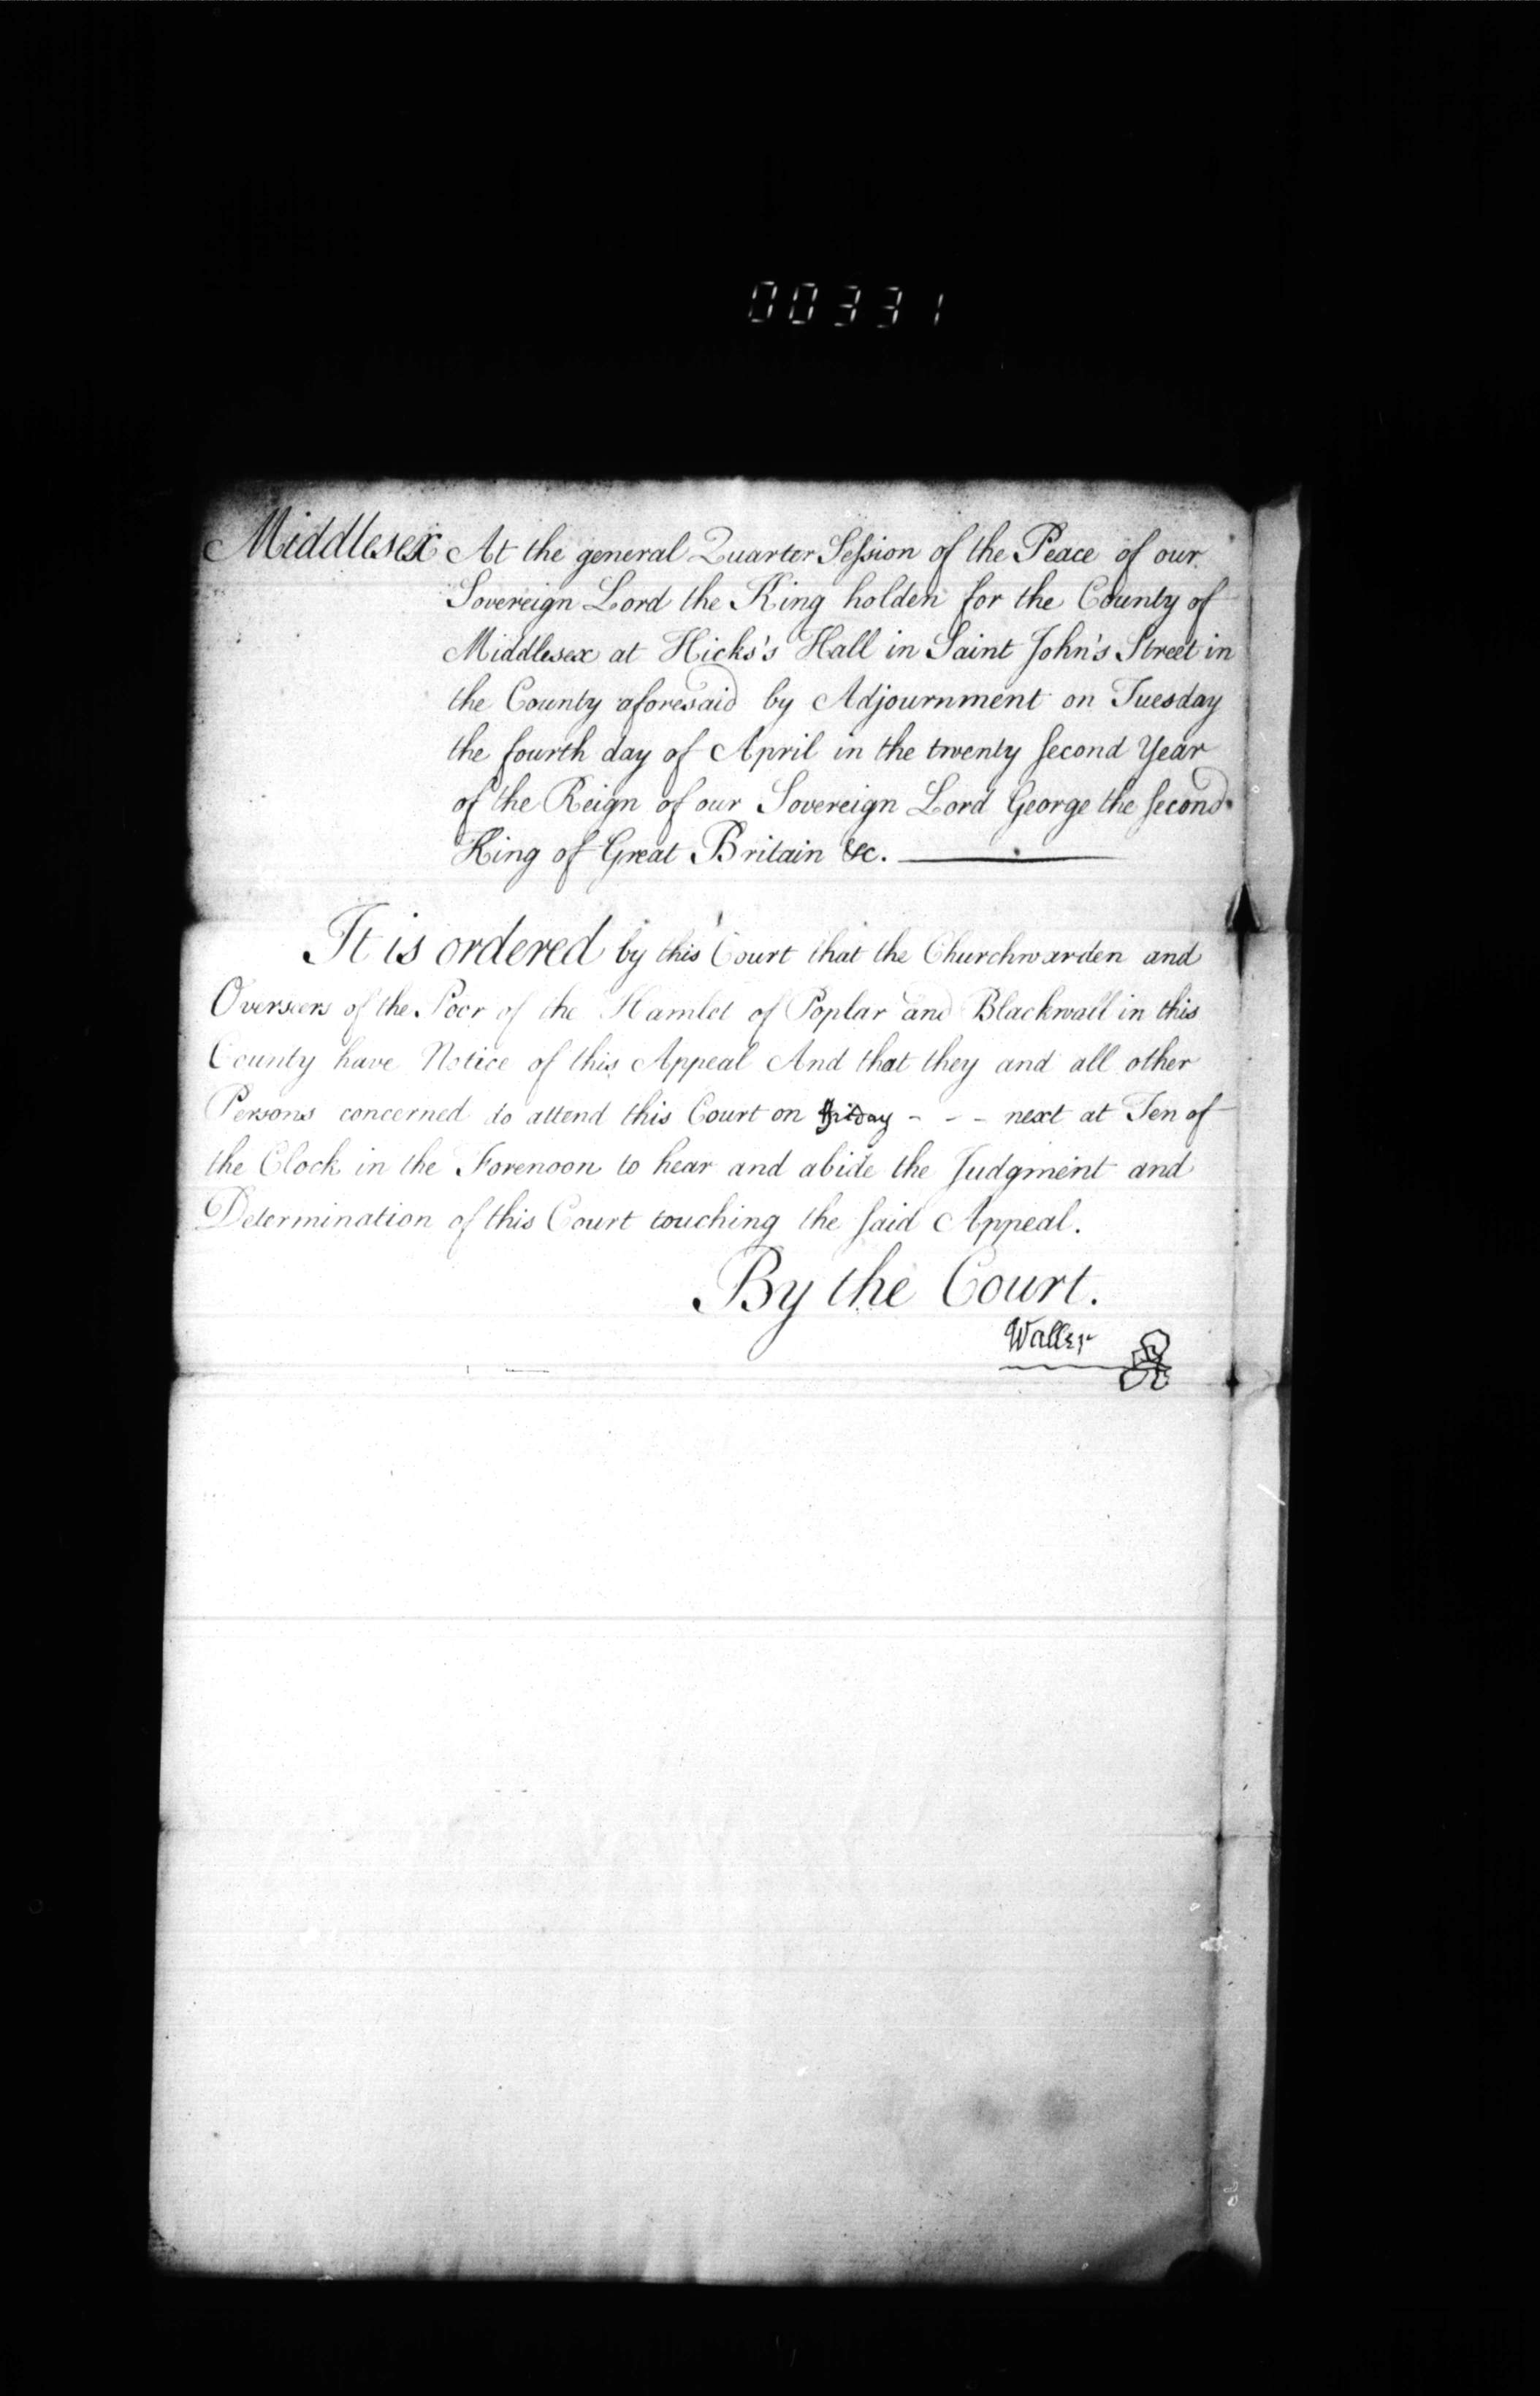 00331
Middlesex At the general Quarter Session of the Peace of our
Sovereign Lord the King holden for the County of
Middlesex at Hicks's Hall in Saint John's Street in
the County aforesaid by Adjournment on Tuesday
the fourth day of April in the twenty second Year
of the Reign of our Sovereign Lord George the second
King of Great Britain &c.
It is ordered by this Court that the Churchwarden and
Overseers of the Poor of the Hamlet of Poplar and Blackwall in this
County have Notice of this Appeal And that they and all other
Persons concerned do attend this Court on Friday - - - next at Ten of
the Clock in the Forenoon to hear and abide the Judgment and
Determination of this Court touching the said Appeal.
By the Court.
Waller